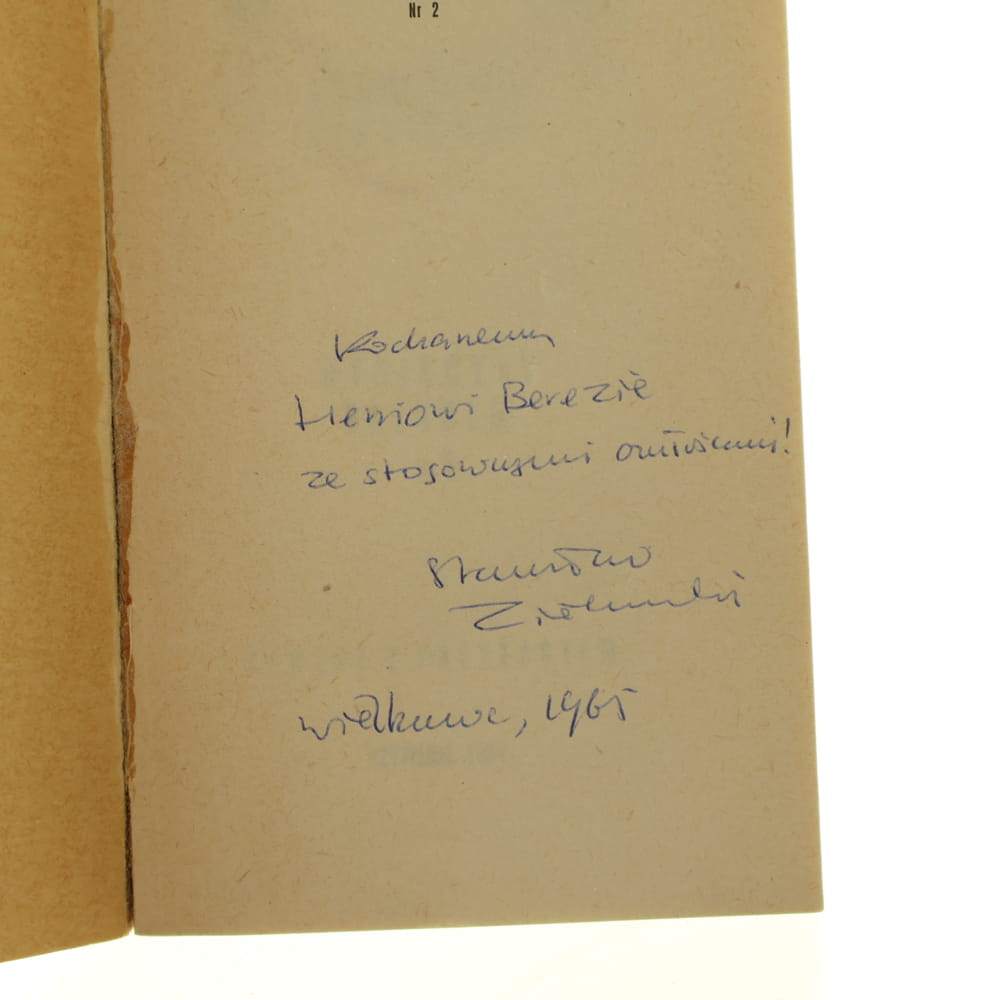 Nr 2
Kochanemu
Heniowi Berezie
ze stosownymi
Stanisław
Zieliński
1965